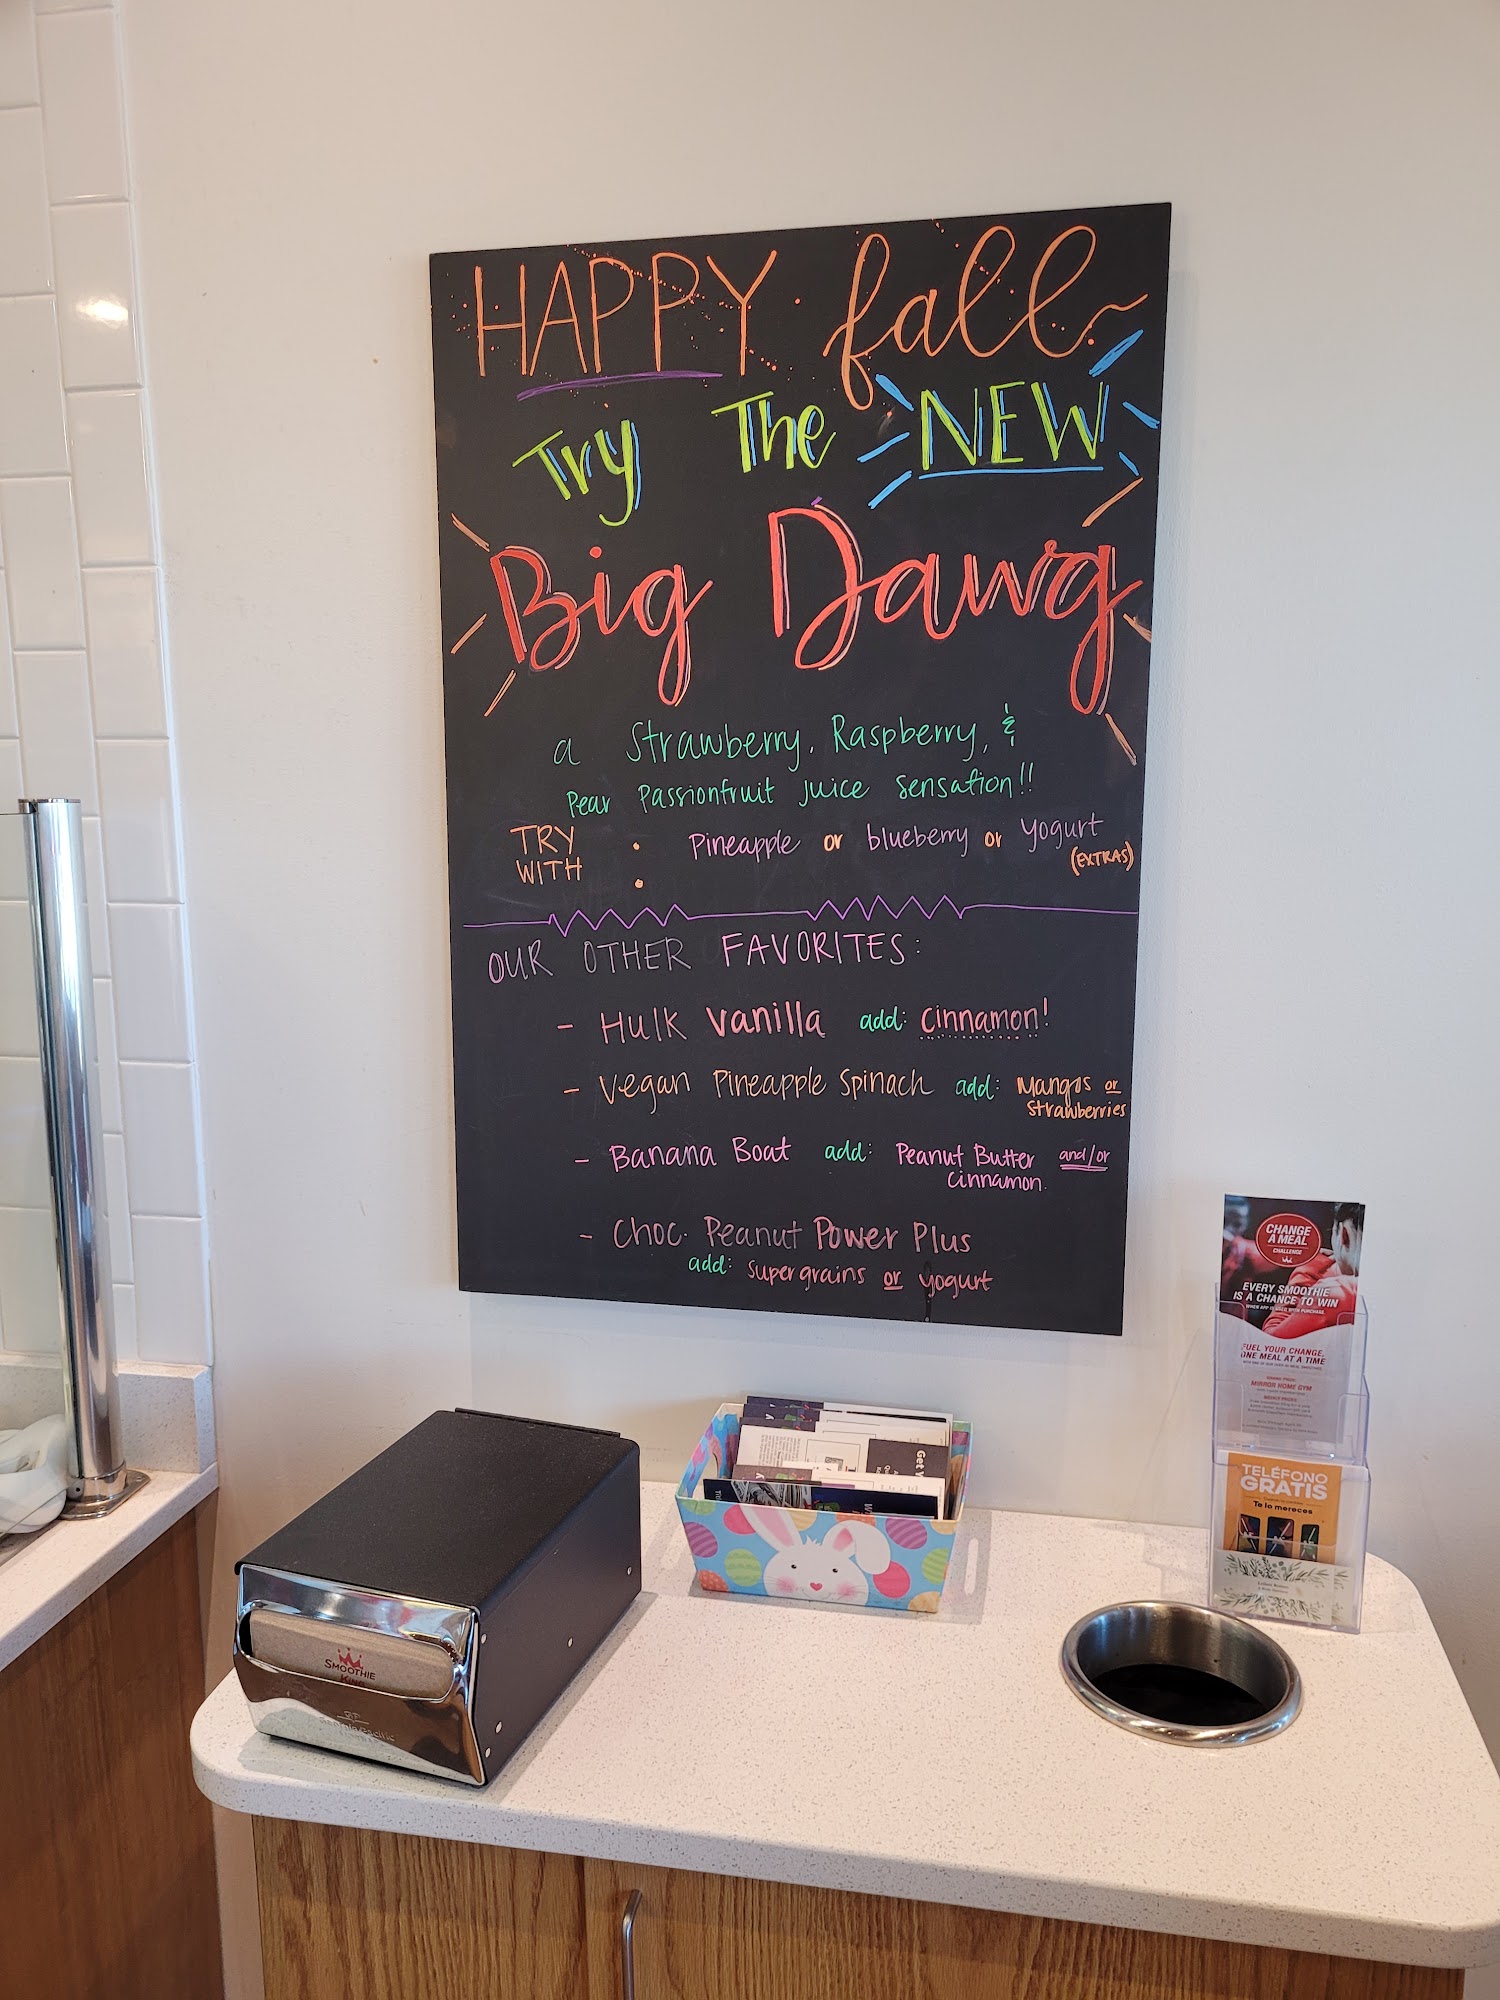 HAPPY fall
Try The NEW
Big Dawg
a Strawberry, Raspberry, &
Pear Passionfruit juice sensation!!
TRY WITH : Pineapple or blueberry or yogurt
(EXTRAS)
OUR OTHER FAVORITES:
- Hulk vanilla add: cinnamon!
- Vegan Pineapple Spinach add: Mangos or
strawberries
- Banana Boat add: Peanut Butter and/or
cinnamon.
- Choc. Peanut Power Plus
add: supergrains or yogurt
CHANGE
A MEAL
CHALLENGE
EVERY SMOOTHIE
IS A CHANCE TO WIN
WHEN APP IS USED WITH PURCHASE.
FUEL YOUR CHANGE,
ONE MEAL AT A TIME
MIRROR HOME GYM
TELÉFONO
GRATIS
Te lo mereces
Get
SMOOTHIE
KING